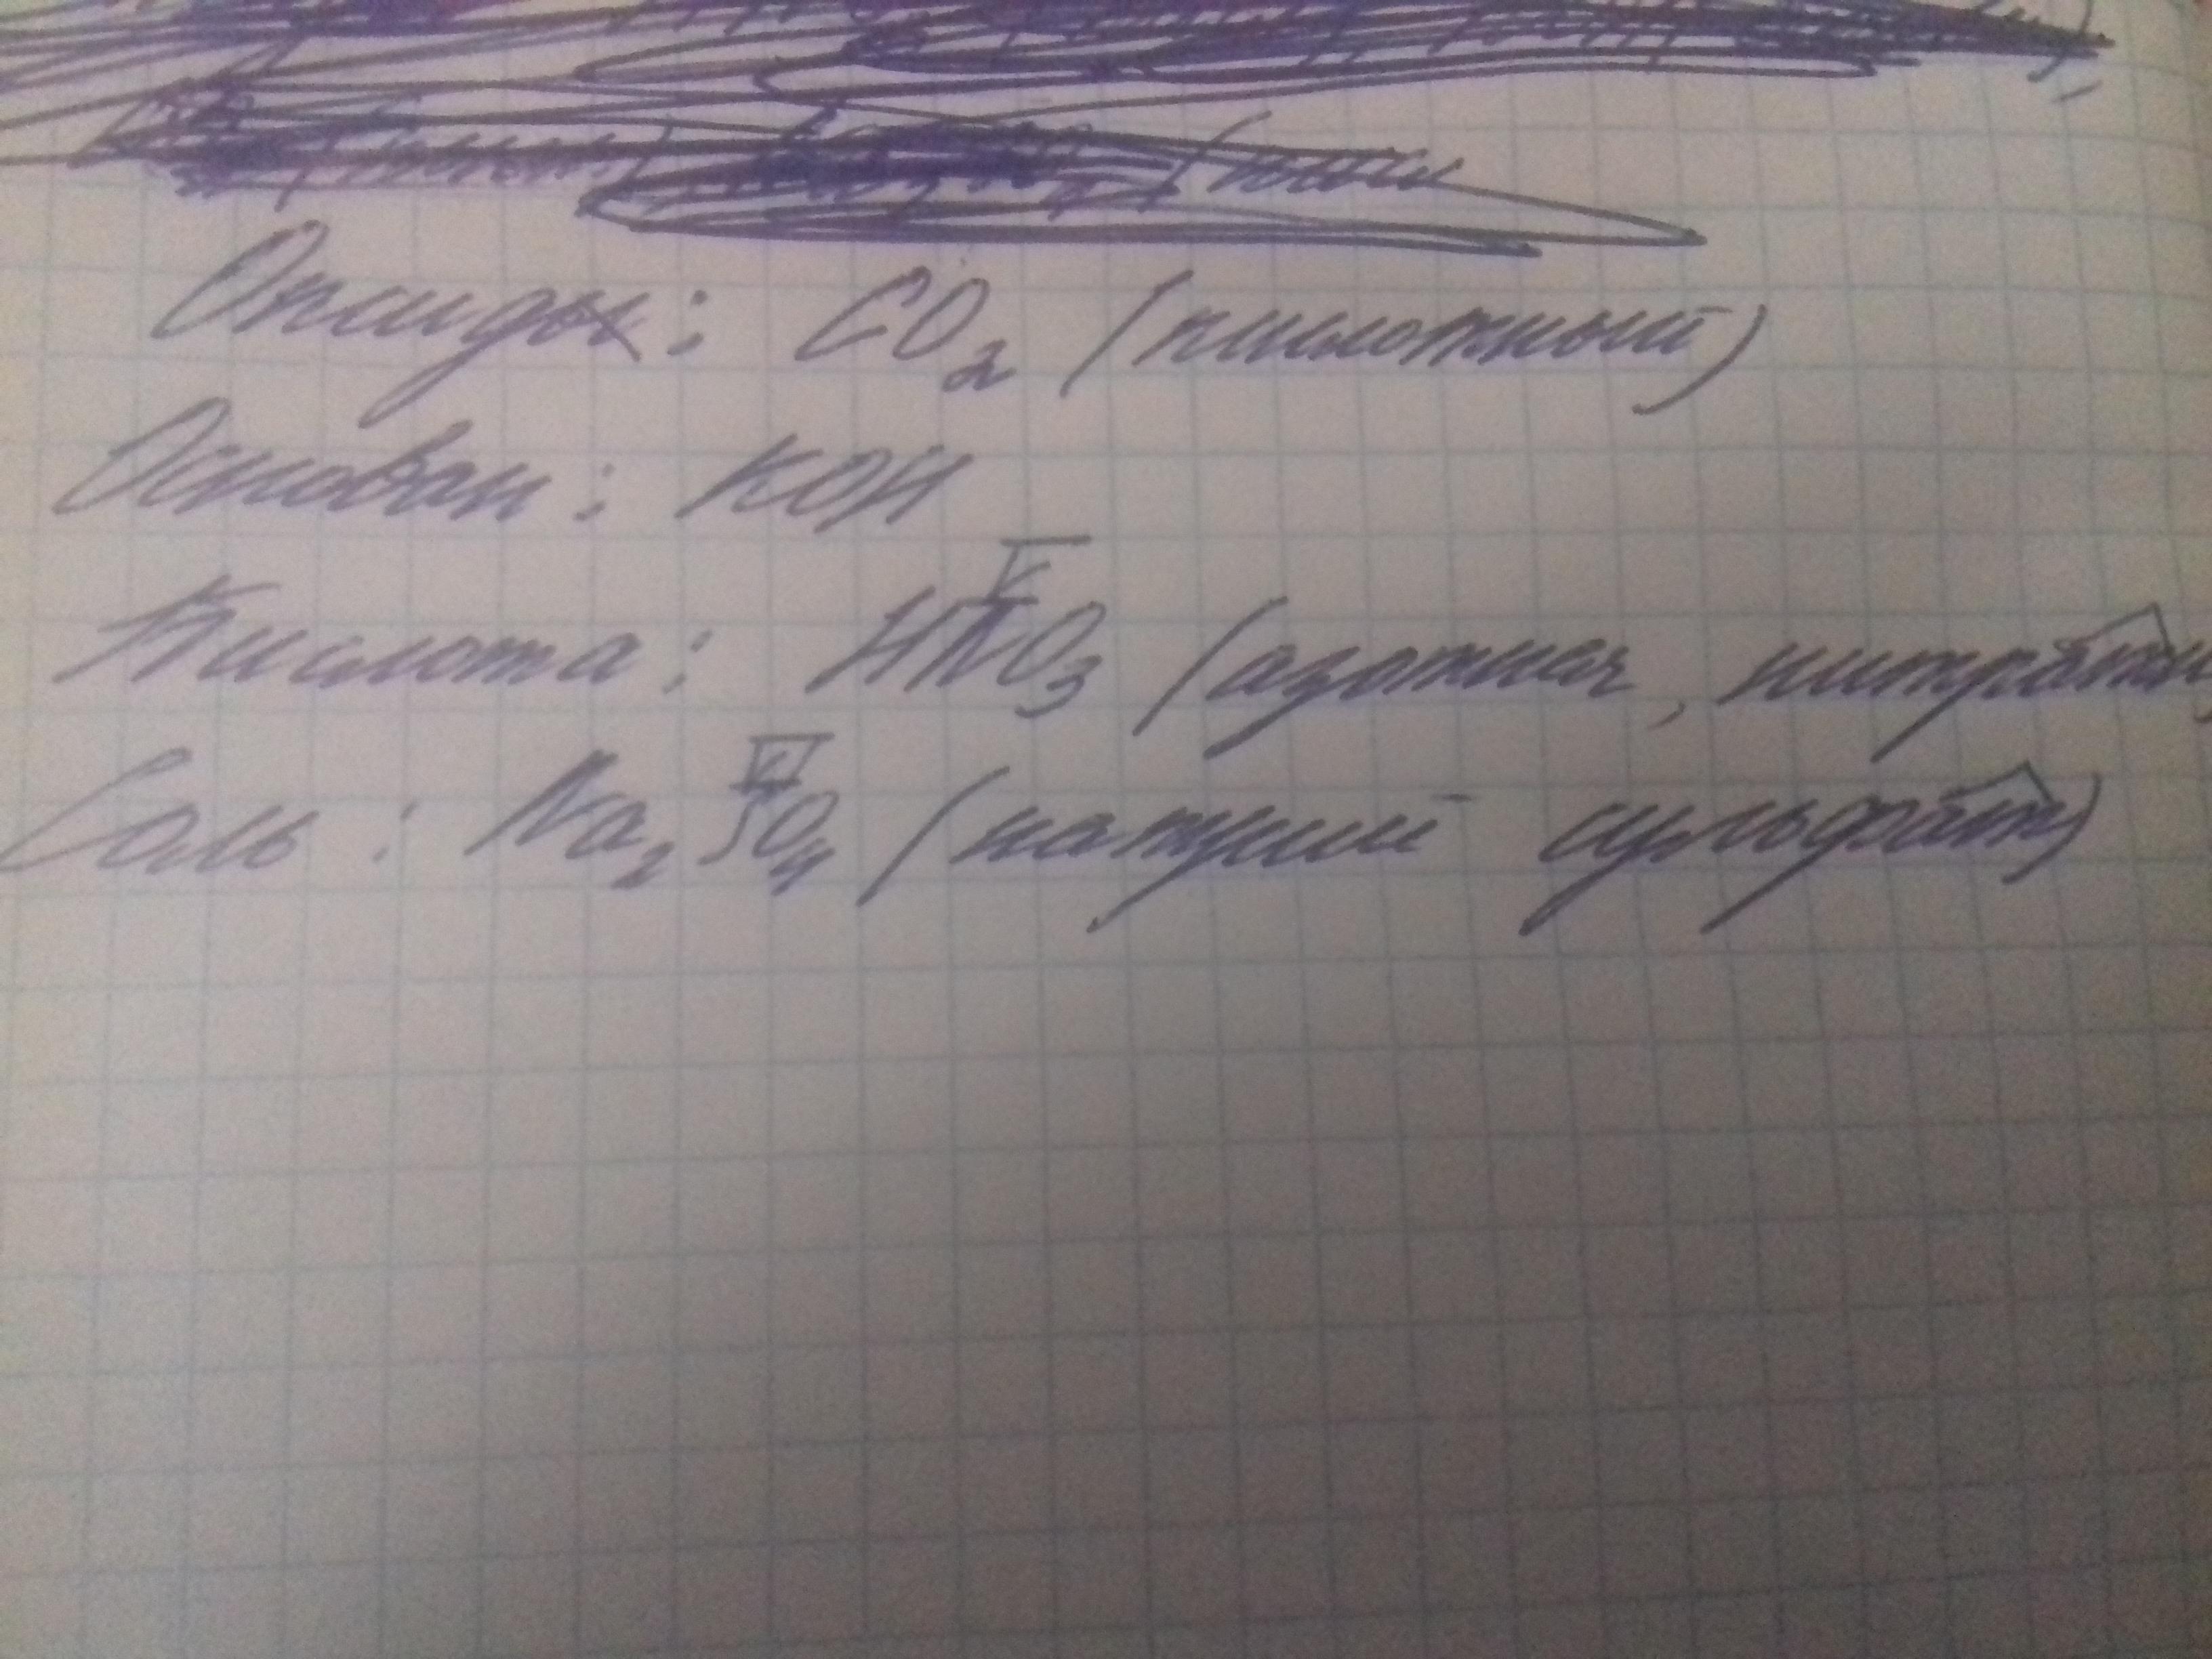 Оксиды: CO2 (кислотный)
Основан: KOH
Кислота: HNO3 (азотная, нитратн
V
Соль: Na2SO4 (натрий сульфат)
VI